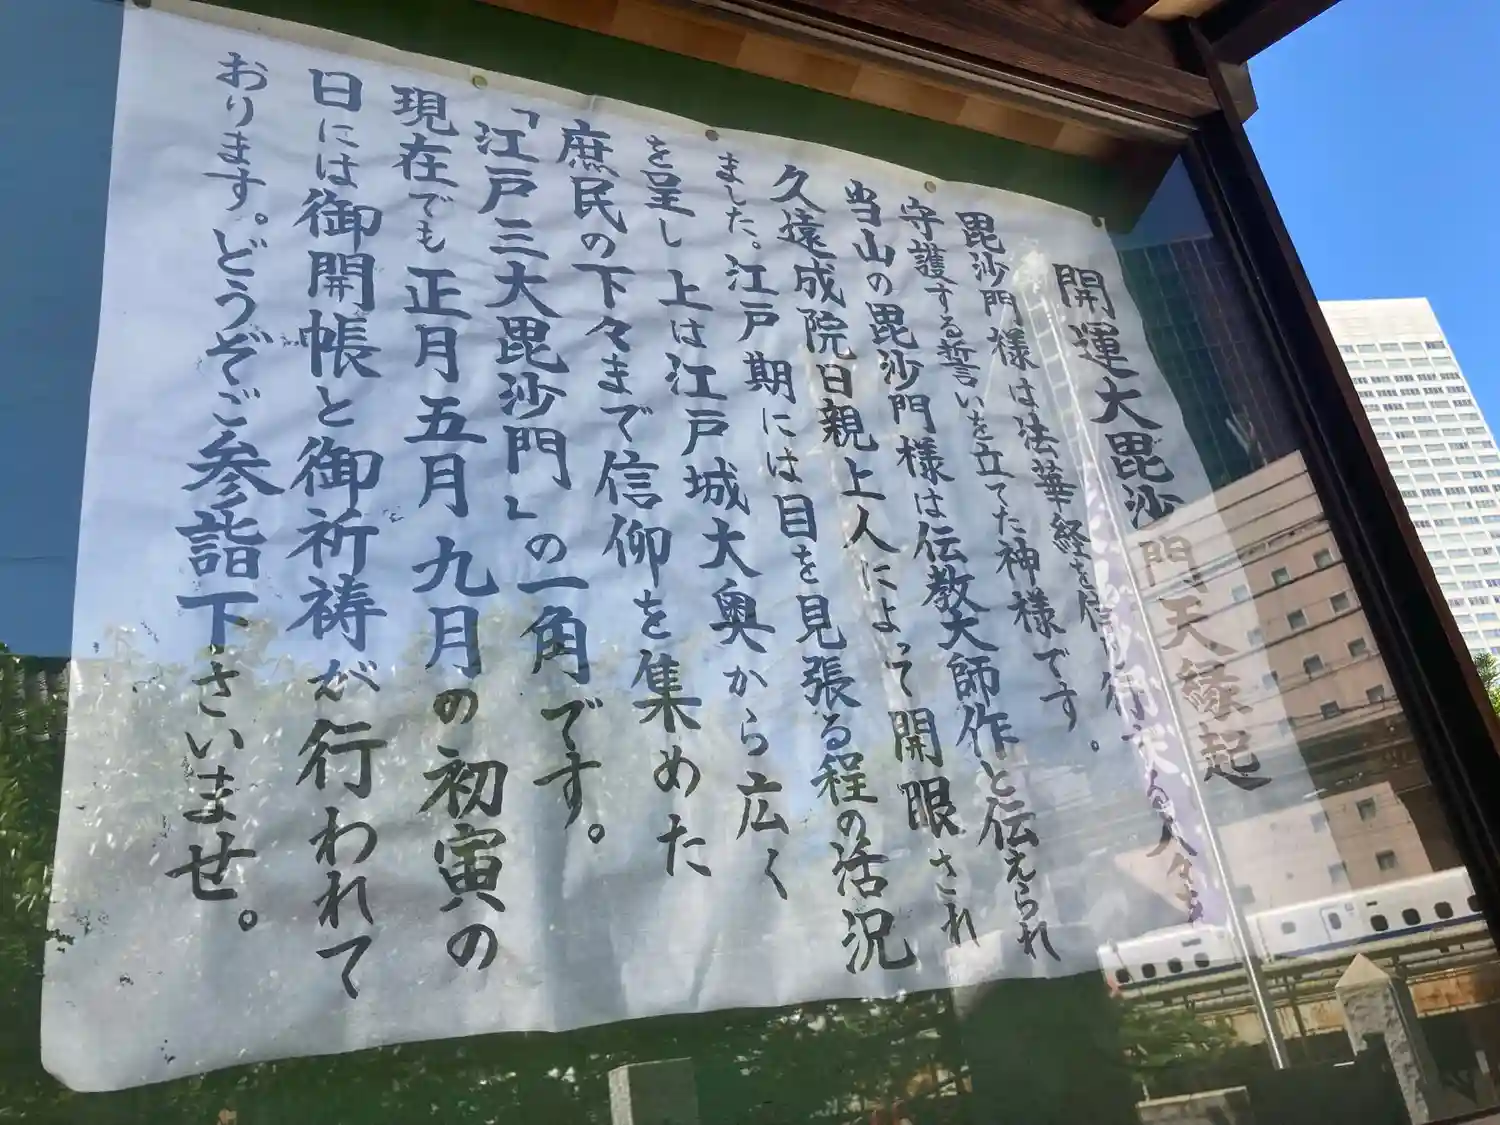 開運大毘沙門天縁起
毘沙門様は法華経を信じ行ずる人々を
守護する誓いを立てた神様です。
当山の毘沙門様は伝教大師作と伝えられ
久遠成院日親上人によって開眼され
ました。江戸期には目を見張る程の活況
を呈し上は江戸城大奥から広く
庶民の下々まで信仰を集めた
「江戸三大毘沙門」の一角です。
現在でも正月五月九月の初寅の
日には御開帳と御祈祷が行われて
おります。どうぞご参詣下さいませ。